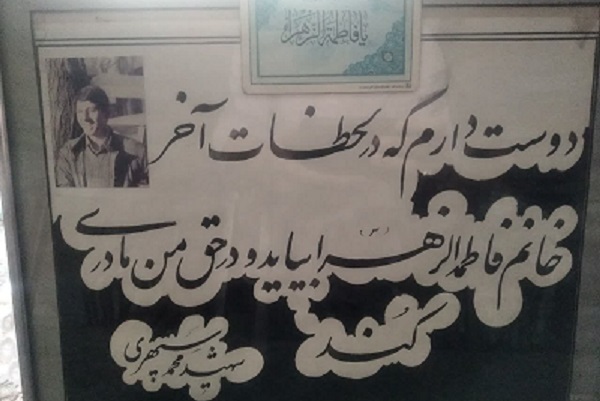 یا فاطمة الزهرا
دوست دارم که در لحظات آخر
خانم فاطمه الزهرا (س) بیاید و در حق من مادری
کند
شهید محمد سپهری